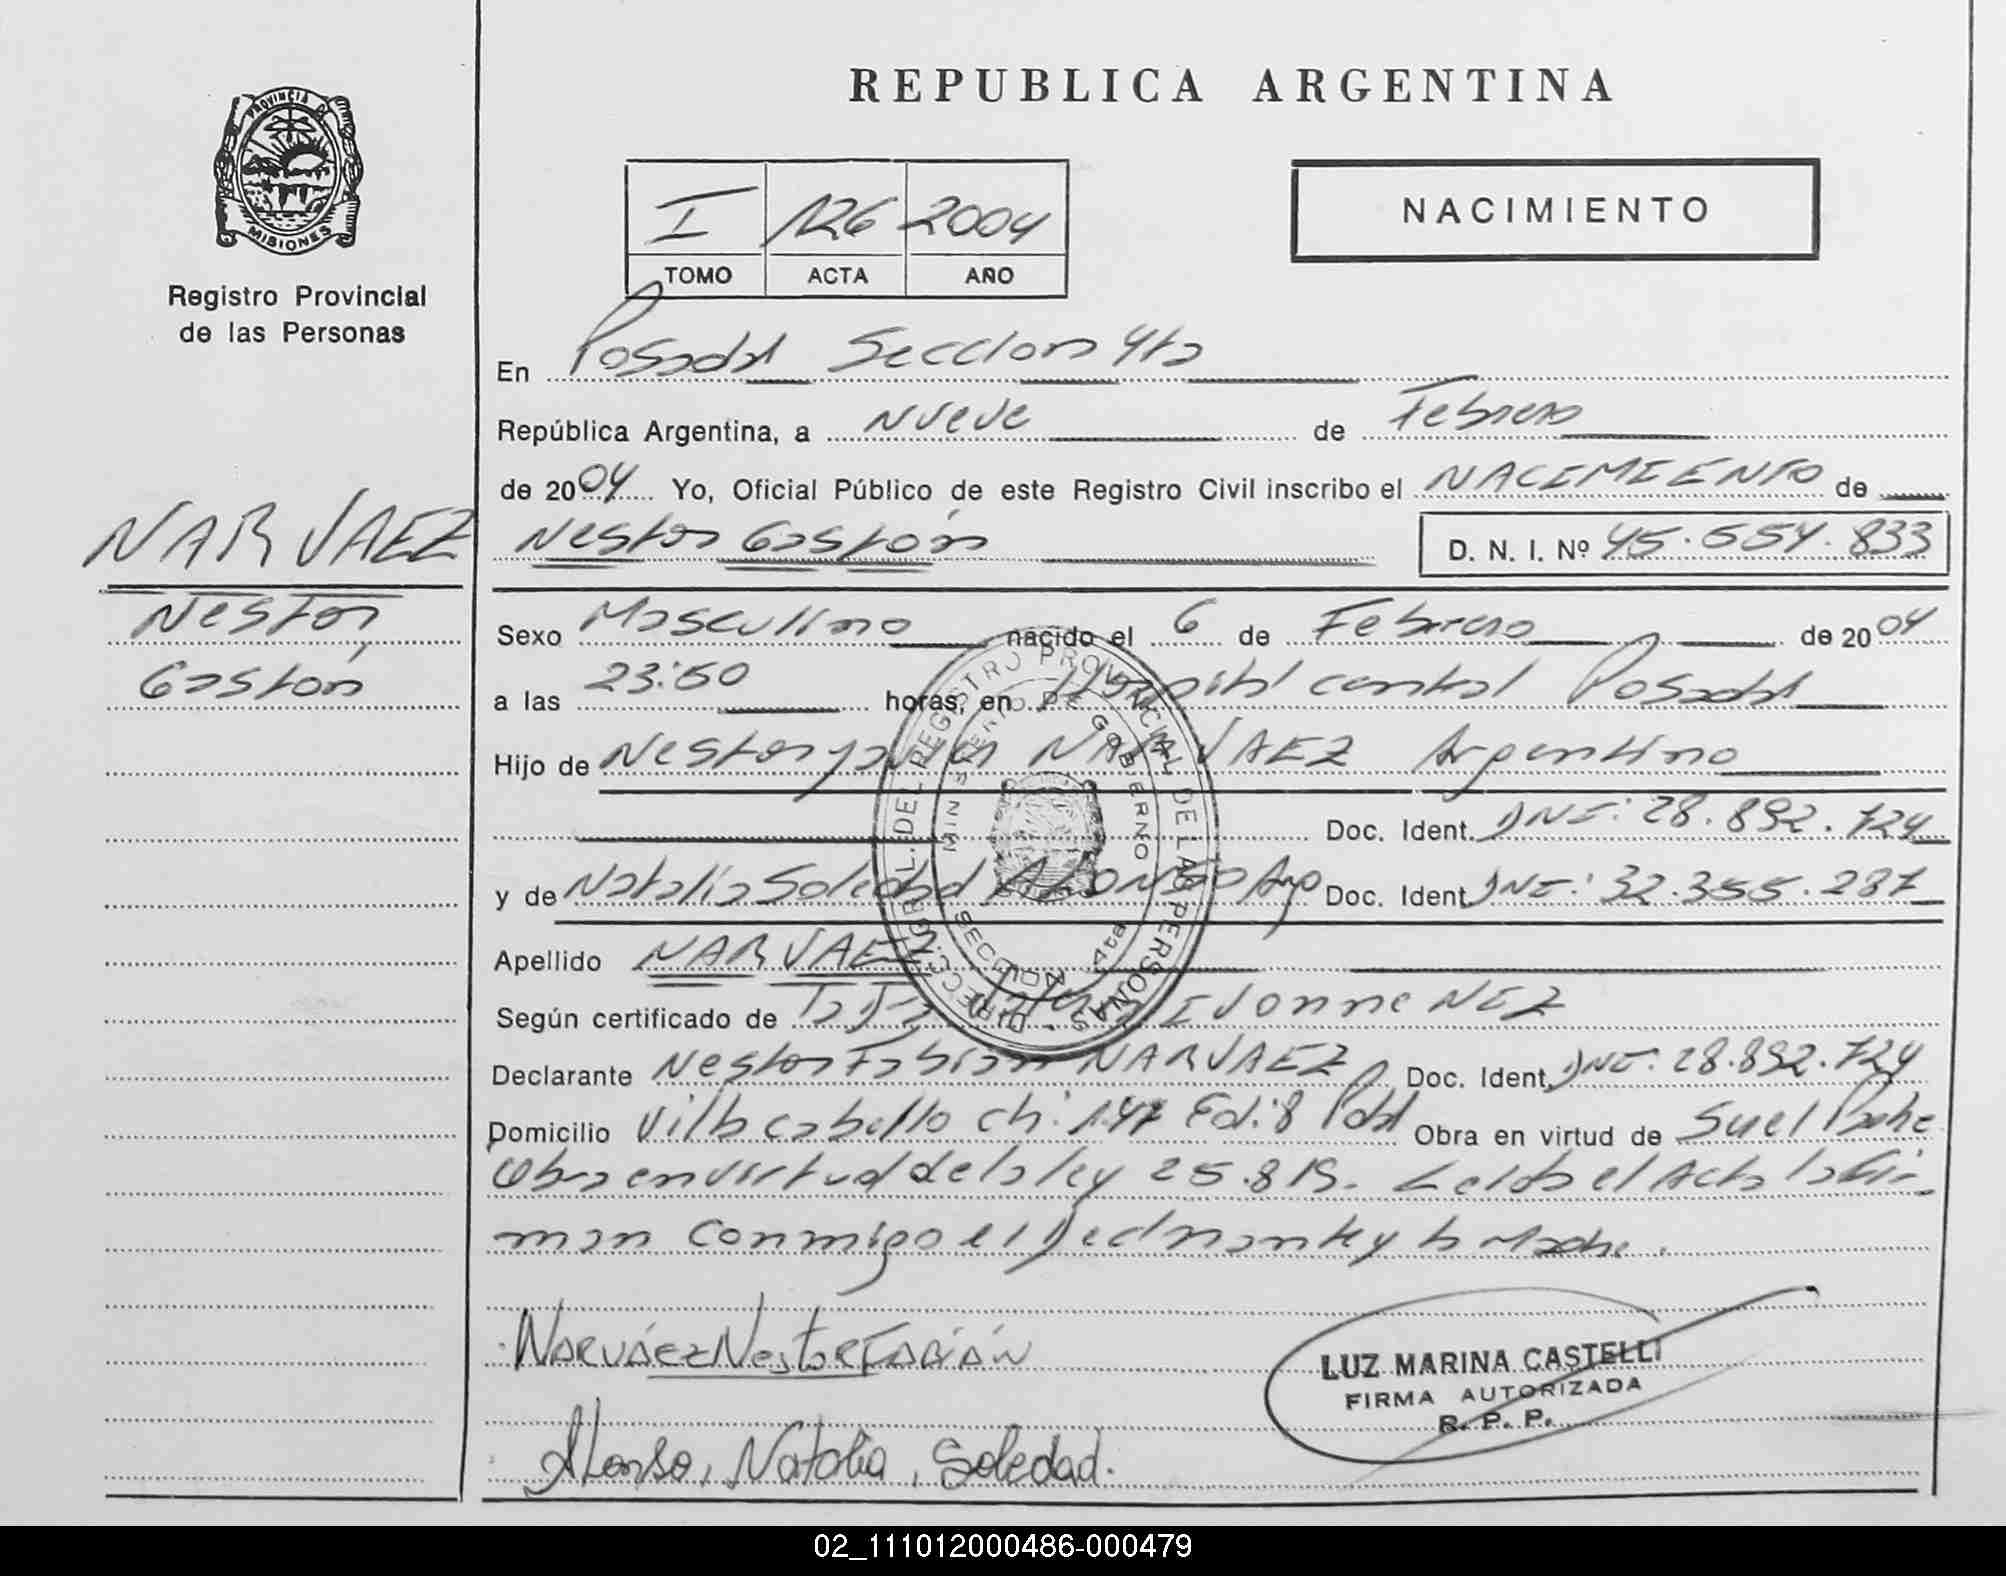 REPUBLICA ARGENTINA
PROVINCIA DE
MISIONES
Registro Provincial
de las Personas
I 126 2004
TOMO ACTA AÑO
NACIMIENTO
En Posadas Seccion 4ta
República Argentina, a Nueve de Febrero
de 2004 Yo, Oficial Público de este Registro Civil inscribo el NACIMIENTO de
Nestor Gastón D. N. I. Nº 45.554.833
NARVAEZ
Nestor,
Gastón
Sexo Masculino nacido el 6 de Febrero de 2004
a las 23:50 horas, en Hospital central Posadas
Hijo de Nestor NARVAEZ Argentino
Doc. Ident. DNI: 28.892.724
y de Natalia Soledad ALONSO Arg Doc. Ident. DNI: 32.355.287
Apellido NARVAEZ
Según certificado de Ivonne NEZ
Declarante Nestor Fabian NARVAEZ Doc. Ident. DNI: 28.892.724
Domicilio Villa cabello ch: 147 Ed: 8 Pdas Obra en virtud de Su el Padre
Obra en virtud de la ley 25.819. Leida el Acta la fir-
man conmigo el Declarante y la Madre.
Narváez Nestor Fabián
Alonso, Natalia, Soledad.
LUZ MARINA CASTELLI
FIRMA AUTORIZADA
R. P. P.
DIRECC. GRAL. DEL REGISTRO PROVINCIAL DE LAS PERSONAS
MINISTERIO DE GOBIERNO
SECCION 4ta
02_111012000486-000479